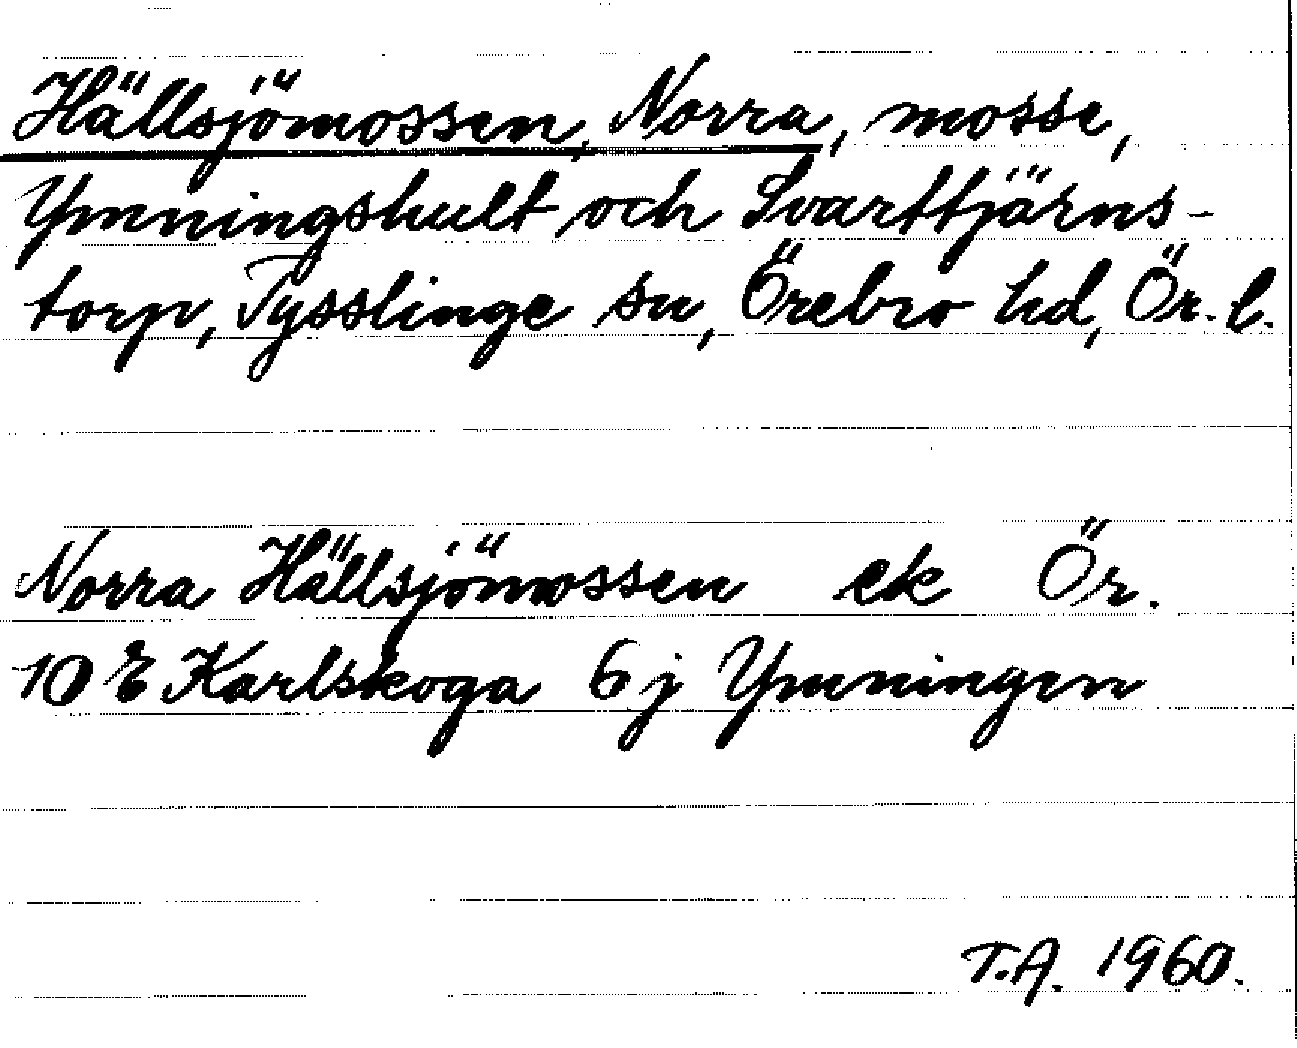 Hällsjömossen, Norra, mosse,
Ymningshult och Svarttjärns-
torp, Tysslinge sn, Örebro hd, Ör. l.
Norra Hällsjömossen ek Ör.
10 E Karlskoga 6 j Ymningen
T.A. 1960.